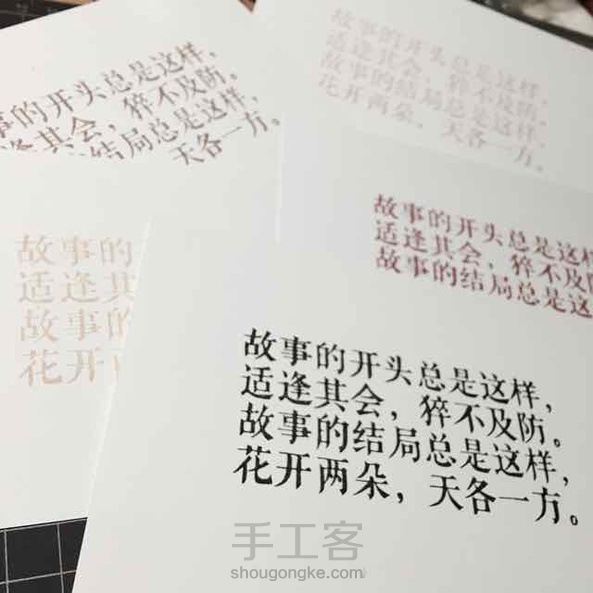 故事的开头总是这样，
适逢其会，猝不及防。
故事的结局总是这样，
花开两朵，天各一方。
事的开头总是这样，
逢其会，猝不及防。
结局总是这样，
天各一方。
故事的
适逢其
故事的
花开
故事的开头总是这样
适逢其会，猝不及防
故事的结局总是这
故事的开头总是这样，
适逢其会，猝不及防。
故事的结局总是这样，
花开两朵，天各一方。
手工客
shougongke.com